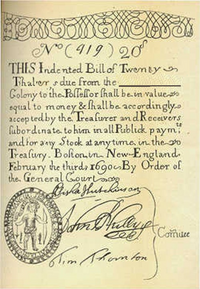 No (919) 20s
THIS Indented Bill of Twenty
due from the
Colony to the Possessor shall be in value
equal to money & shall be accordingly
accepted by the Treasurer and Receivers
subordinate to him in all Publick paymts
and for any Stock at any time in the
Treasury. Boston in New-England
February the third 1690. By Order of
the General Court
Elisha Hutchinson
Tim Thornton
Comitee